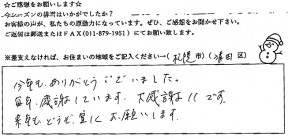 ☆ご感想をお願いします☆
今シーズンの排雪はいかがでしたか?
お客様の声が、私たちの原動力になっています。ぜひ、ご感想をお聞かせ下さい。
ご返信は郵送またはFAX(011-879-1951)にてお願い致します。
※差支えなければ、お住まいの地域をご記入ください(札幌市)(清田区)
今年もありがとうございました。
毎年、感謝しています。大感謝です。
来年もどうぞ、宜しくお願いします。